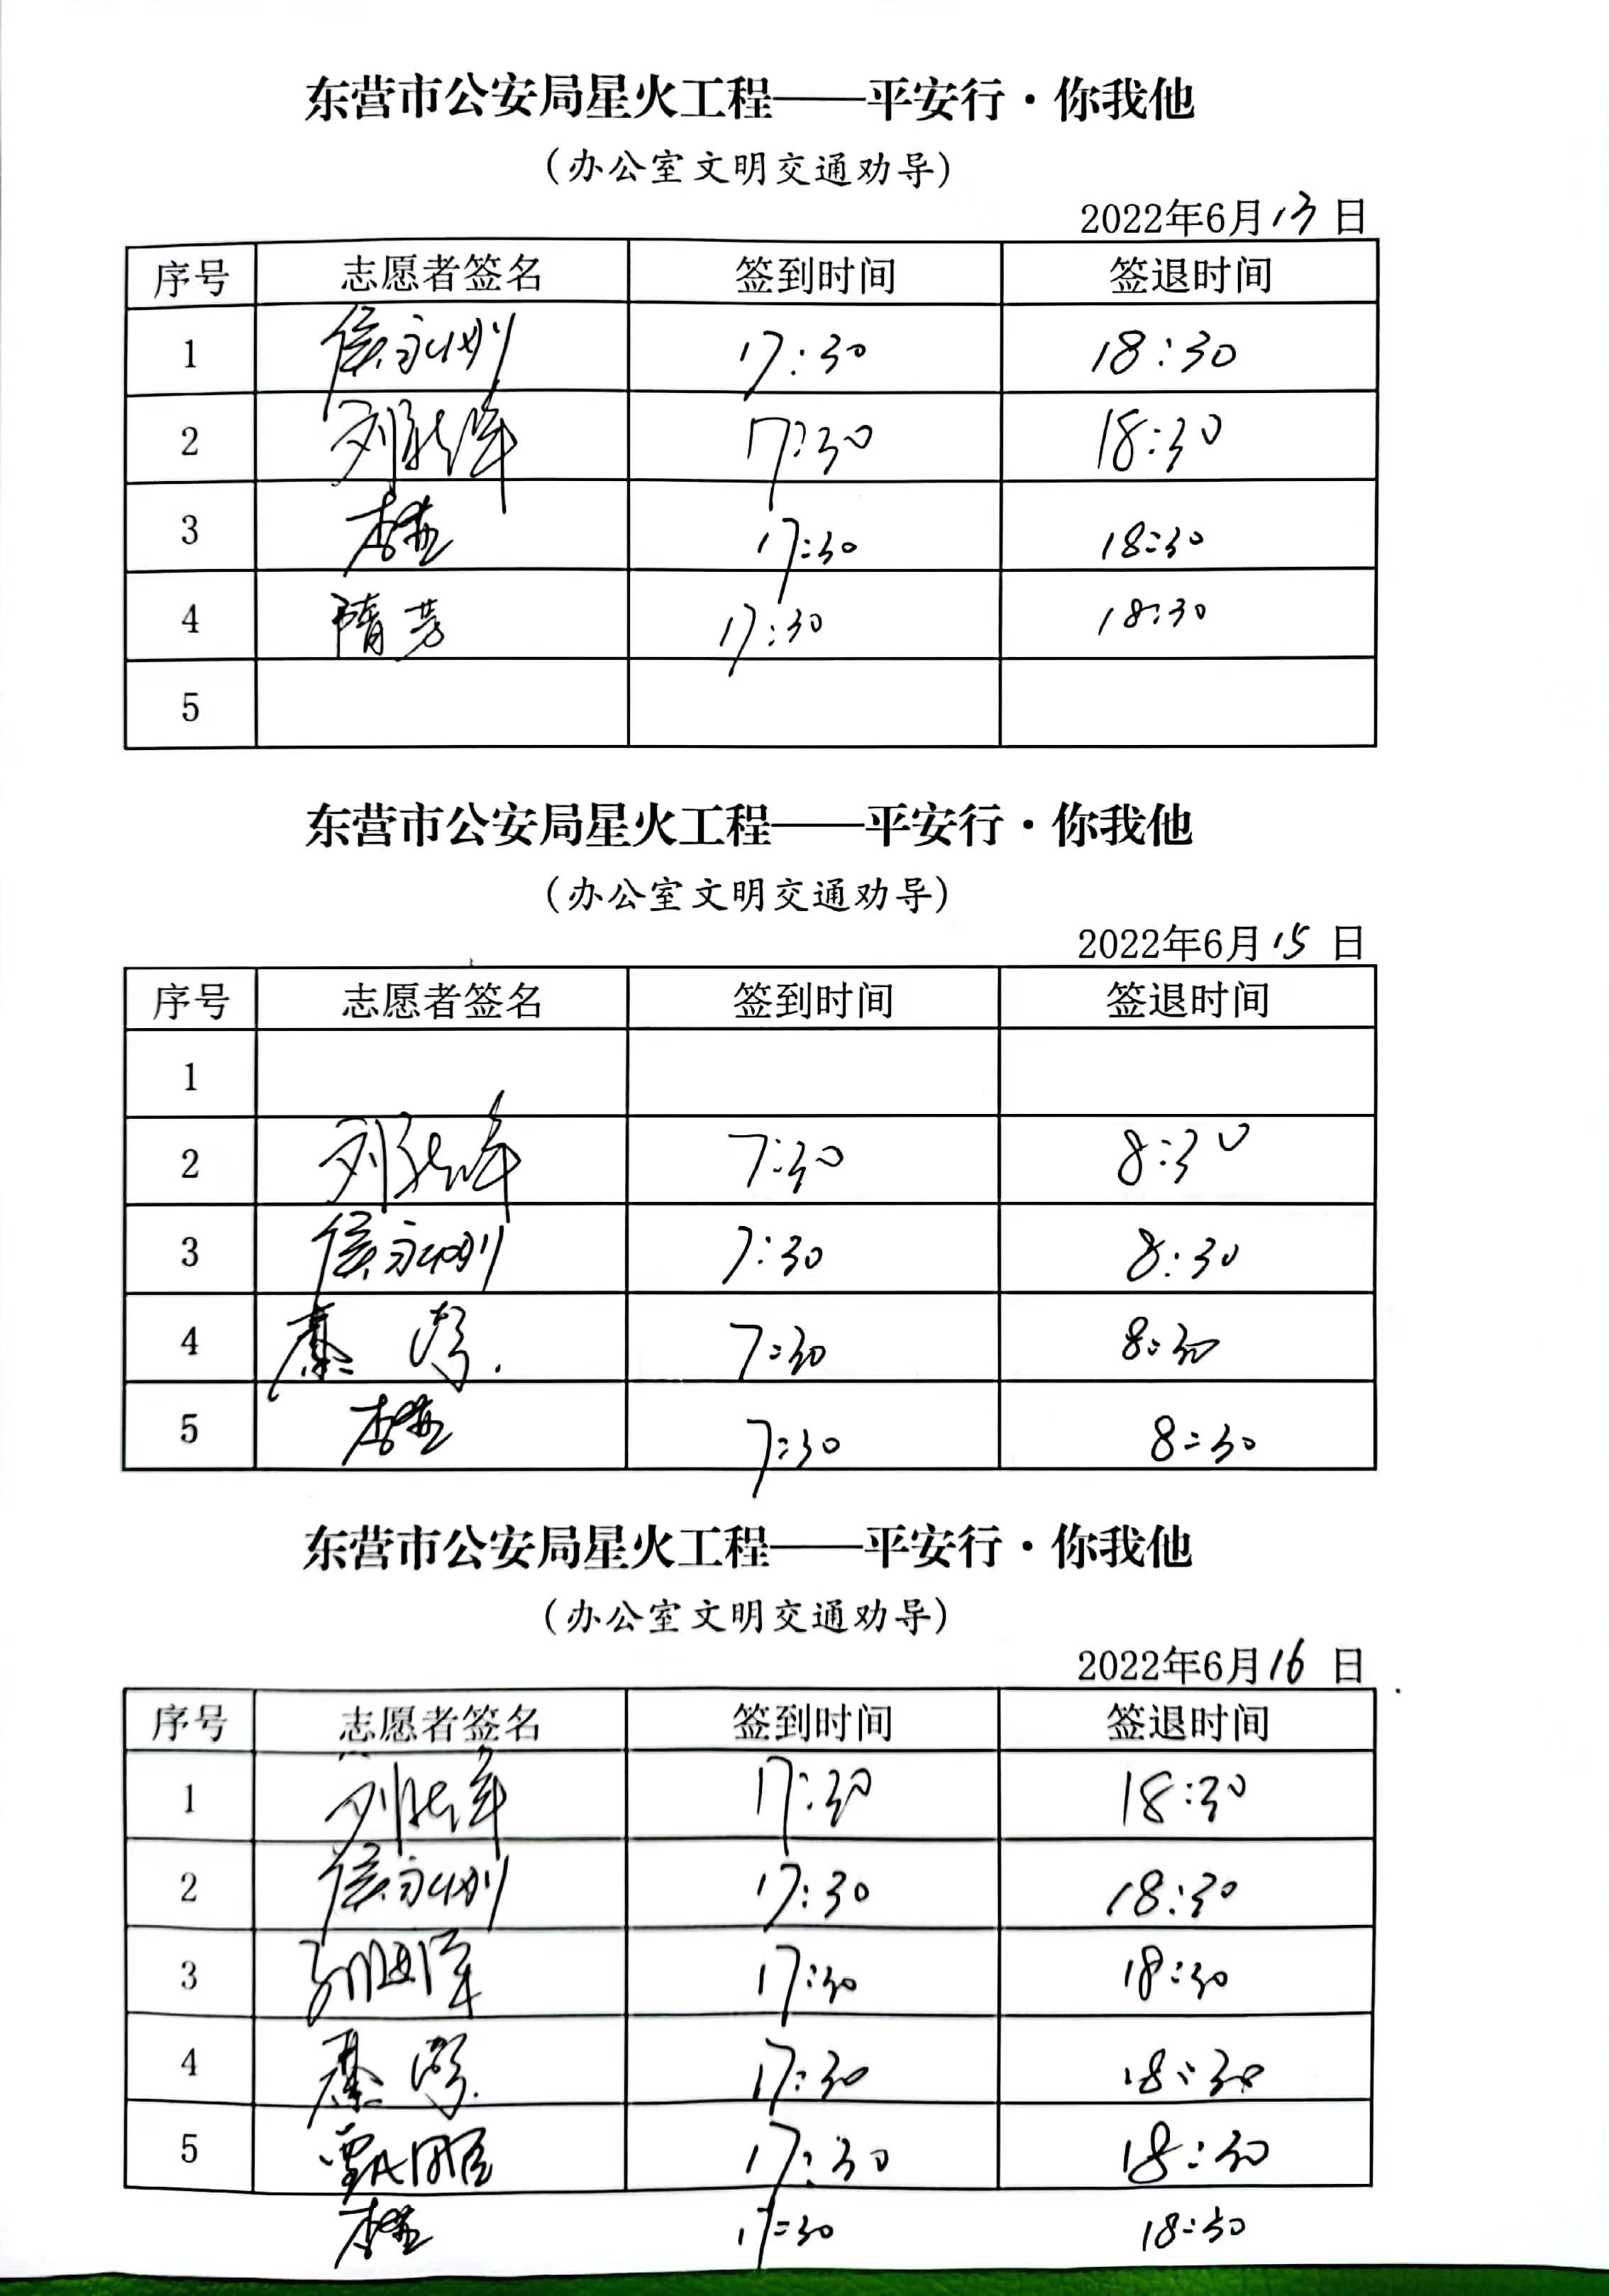 东营市公安局星火工程——平安行·你我他
(办公室文明交通劝导)
2022年6月13日
序号 志愿者签名 签到时间 签退时间
1 侯永刚 17:30 18:30
2 刘 军 17:30 18:30
3 李 17:30 18:30
4 隋芳 17:30 18:30
5
东营市公安局星火工程——平安行·你我他
(办公室文明交通劝导)
2022年6月15日
序号 志愿者签名 签到时间 签退时间
1
2 刘 军 7:30 8:30
3 侯永刚 7:30 8:30
4 秦 7:30 8:30
5 李 7:30 8:30
东营市公安局星火工程——平安行·你我他
(办公室文明交通劝导)
2022年6月16日
序号 志愿者签名 签到时间 签退时间
1 刘 军 17:30 18:30
2 侯永刚 17:30 18:30
3 军 17:30 18:30
4 秦 17:30 18:30
5 17:30 18:30
李 17:30 18:30